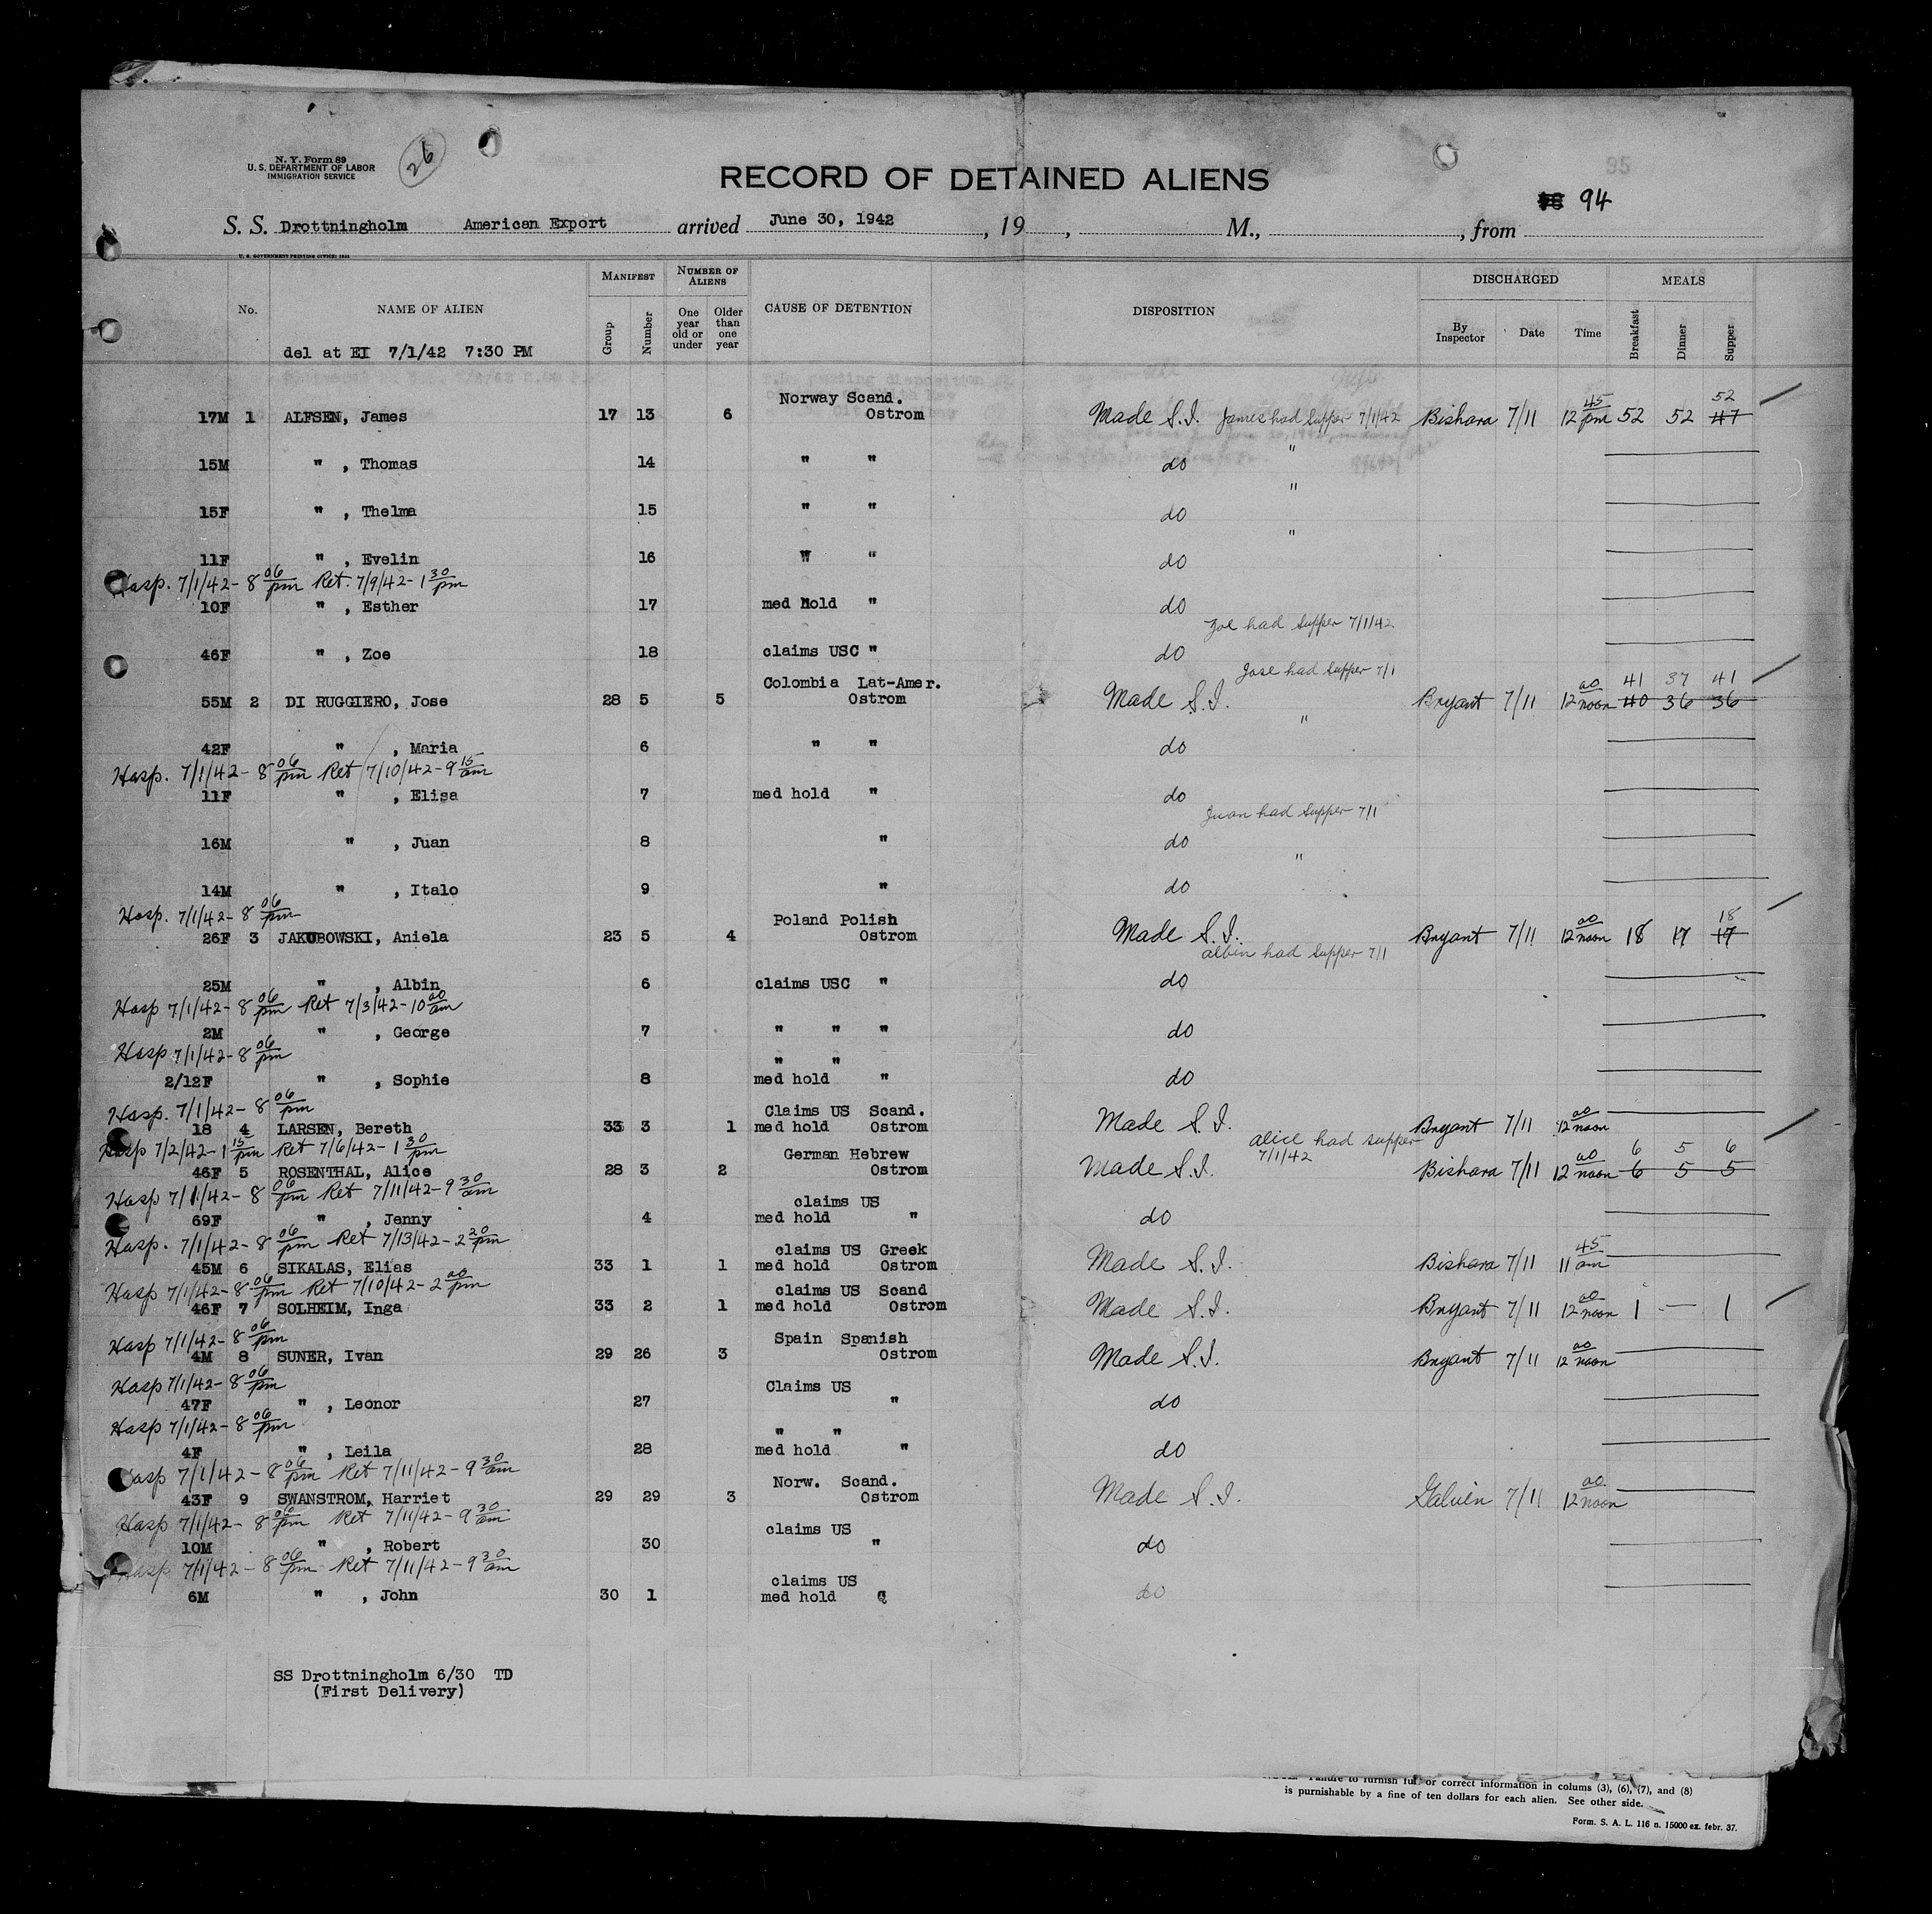 N. Y. Form 89
U. S. DEPARTMENT OF LABOR
IMMIGRATION SERVICE
26
RECORD OF DETAINED ALIENS
95
94
S. S. Drottningholm American Export arrived June 30, 1942, 19 , M., , from
U. S. GOVERNMENT PRINTING OFFICE: 1941
No. NAME OF ALIEN MANIFEST Group Number NUMBER OF ALIENS One year old or under Older than one year CAUSE OF DETENTION DISPOSITION DISCHARGED By Inspector Date Time MEALS Breakfast Dinner Supper
del at EI 7/1/42 7:30 PM
Norway Scand. 52
17M 1 ALFSEN, James 17 13 6 Ostrom Made S.I. James had Supper 7/1/42 Bishara 7/11 12 45 pm 52 52 47
15M " , Thomas 14 " " do "
15F " , Thelma 15 " " do "
11F " , Evelin 16 " " do "
Hosp. 7/1/42 - 8 06 pm Ret. 7/9/42 - 1 30 pm
10F " , Esther 17 med hold " do
Zoe had Supper 7/1/42
46F " , Zoe 18 claims USC " do
Jose had Supper 7/1
Colombia Lat-Amer. 41 37 41
55M 2 DI RUGGIERO, Jose 28 5 5 Ostrom Made S.I. Bryant 7/11 12 00 noon 40 36 36
42F " , Maria 6 " " do "
Hosp. 7/1/42 - 8 06 pm Ret 7/10/42 - 9 15 am
11F " , Elisa 7 med hold " do
Juan had Supper 7/1
16M " , Juan 8 " do
14M " , Italo 9 " do "
Hosp. 7/1/42 - 8 06 pm
Poland Polish 18
26F 3 JAKUBOWSKI, Aniela 23 5 4 Ostrom Made S.I. Bryant 7/11 12 00 noon 18 17 17
Albin had Supper 7/1
25M " , Albin 6 claims USC " do
Hosp 7/1/42 - 8 06 pm Ret 7/3/42 - 10 00 am
2M " , George 7 " " " do
Hosp 7/1/42 - 8 06 pm
" "
2/12F " , Sophie 8 med hold " do
Hosp. 7/1/42 - 8 06 pm
Claims US Scand.
18 4 LARSEN, Bereth 33 3 1 med hold Ostrom Made S.I. Bryant 7/11 12 00 noon
Hosp 7/2/42 - 1 15 pm Ret 7/6/42 - 1 30 pm
Alice had supper 7/1/42
German Hebrew 6 5 6
46F 5 ROSENTHAL, Alice 28 3 2 Ostrom Made S.I. Bishara 7/11 12 00 noon 6 5 5
Hosp 7/1/42 - 8 06 pm Ret 7/11/42 - 9 30 am
claims US
69F " , Jenny 4 med hold " do
Hosp. 7/1/42 - 8 06 pm Ret 7/13/42 - 2 20 pm
claims US Greek
45M 6 SIKALAS, Elias 33 1 1 med hold Ostrom Made S.I. Bishara 7/11 11 45 am
Hosp 7/1/42 - 8 06 pm Ret 7/10/42 - 2 00 pm
claims US Scand
46F 7 SOLHEIM, Inga 33 2 1 med hold Ostrom Made S.I. Bryant 7/11 12 00 noon 1 — 1
Hosp 7/1/42 - 8 06 pm
Spain Spanish
4M 8 SUNER, Ivan 29 26 3 Ostrom Made S.I. Bryant 7/11 12 00 noon
Hosp 7/1/42 - 8 06 pm
Claims US
47F " , Leonor 27 " do
Hosp 7/1/42 - 8 06 pm
" "
4F " , Leila 28 med hold " do
Hosp 7/1/42 - 8 06 pm Ret 7/11/42 - 9 30 am
Norw. Scand.
43F 9 SWANSTROM, Harriet 29 29 3 Ostrom Made S.I. Galvin 7/11 12 00 noon
Hosp 7/1/42 - 8 06 pm Ret 7/11/42 - 9 30 am
claims US
10M " , Robert 30 " do
Hosp 7/1/42 - 8 06 pm Ret 7/11/42 - 9 30 am
claims US
6M " , John 30 1 med hold " do
SS Drottningholm 6/30 TD
(First Delivery)
Failure to furnish full or correct information in colums (3), (6), (7), and (8)
is purnishable by a fine of ten dollars for each alien. See other side.
Form. S. A. L. 116 n. 15000 ex. febr. 37.